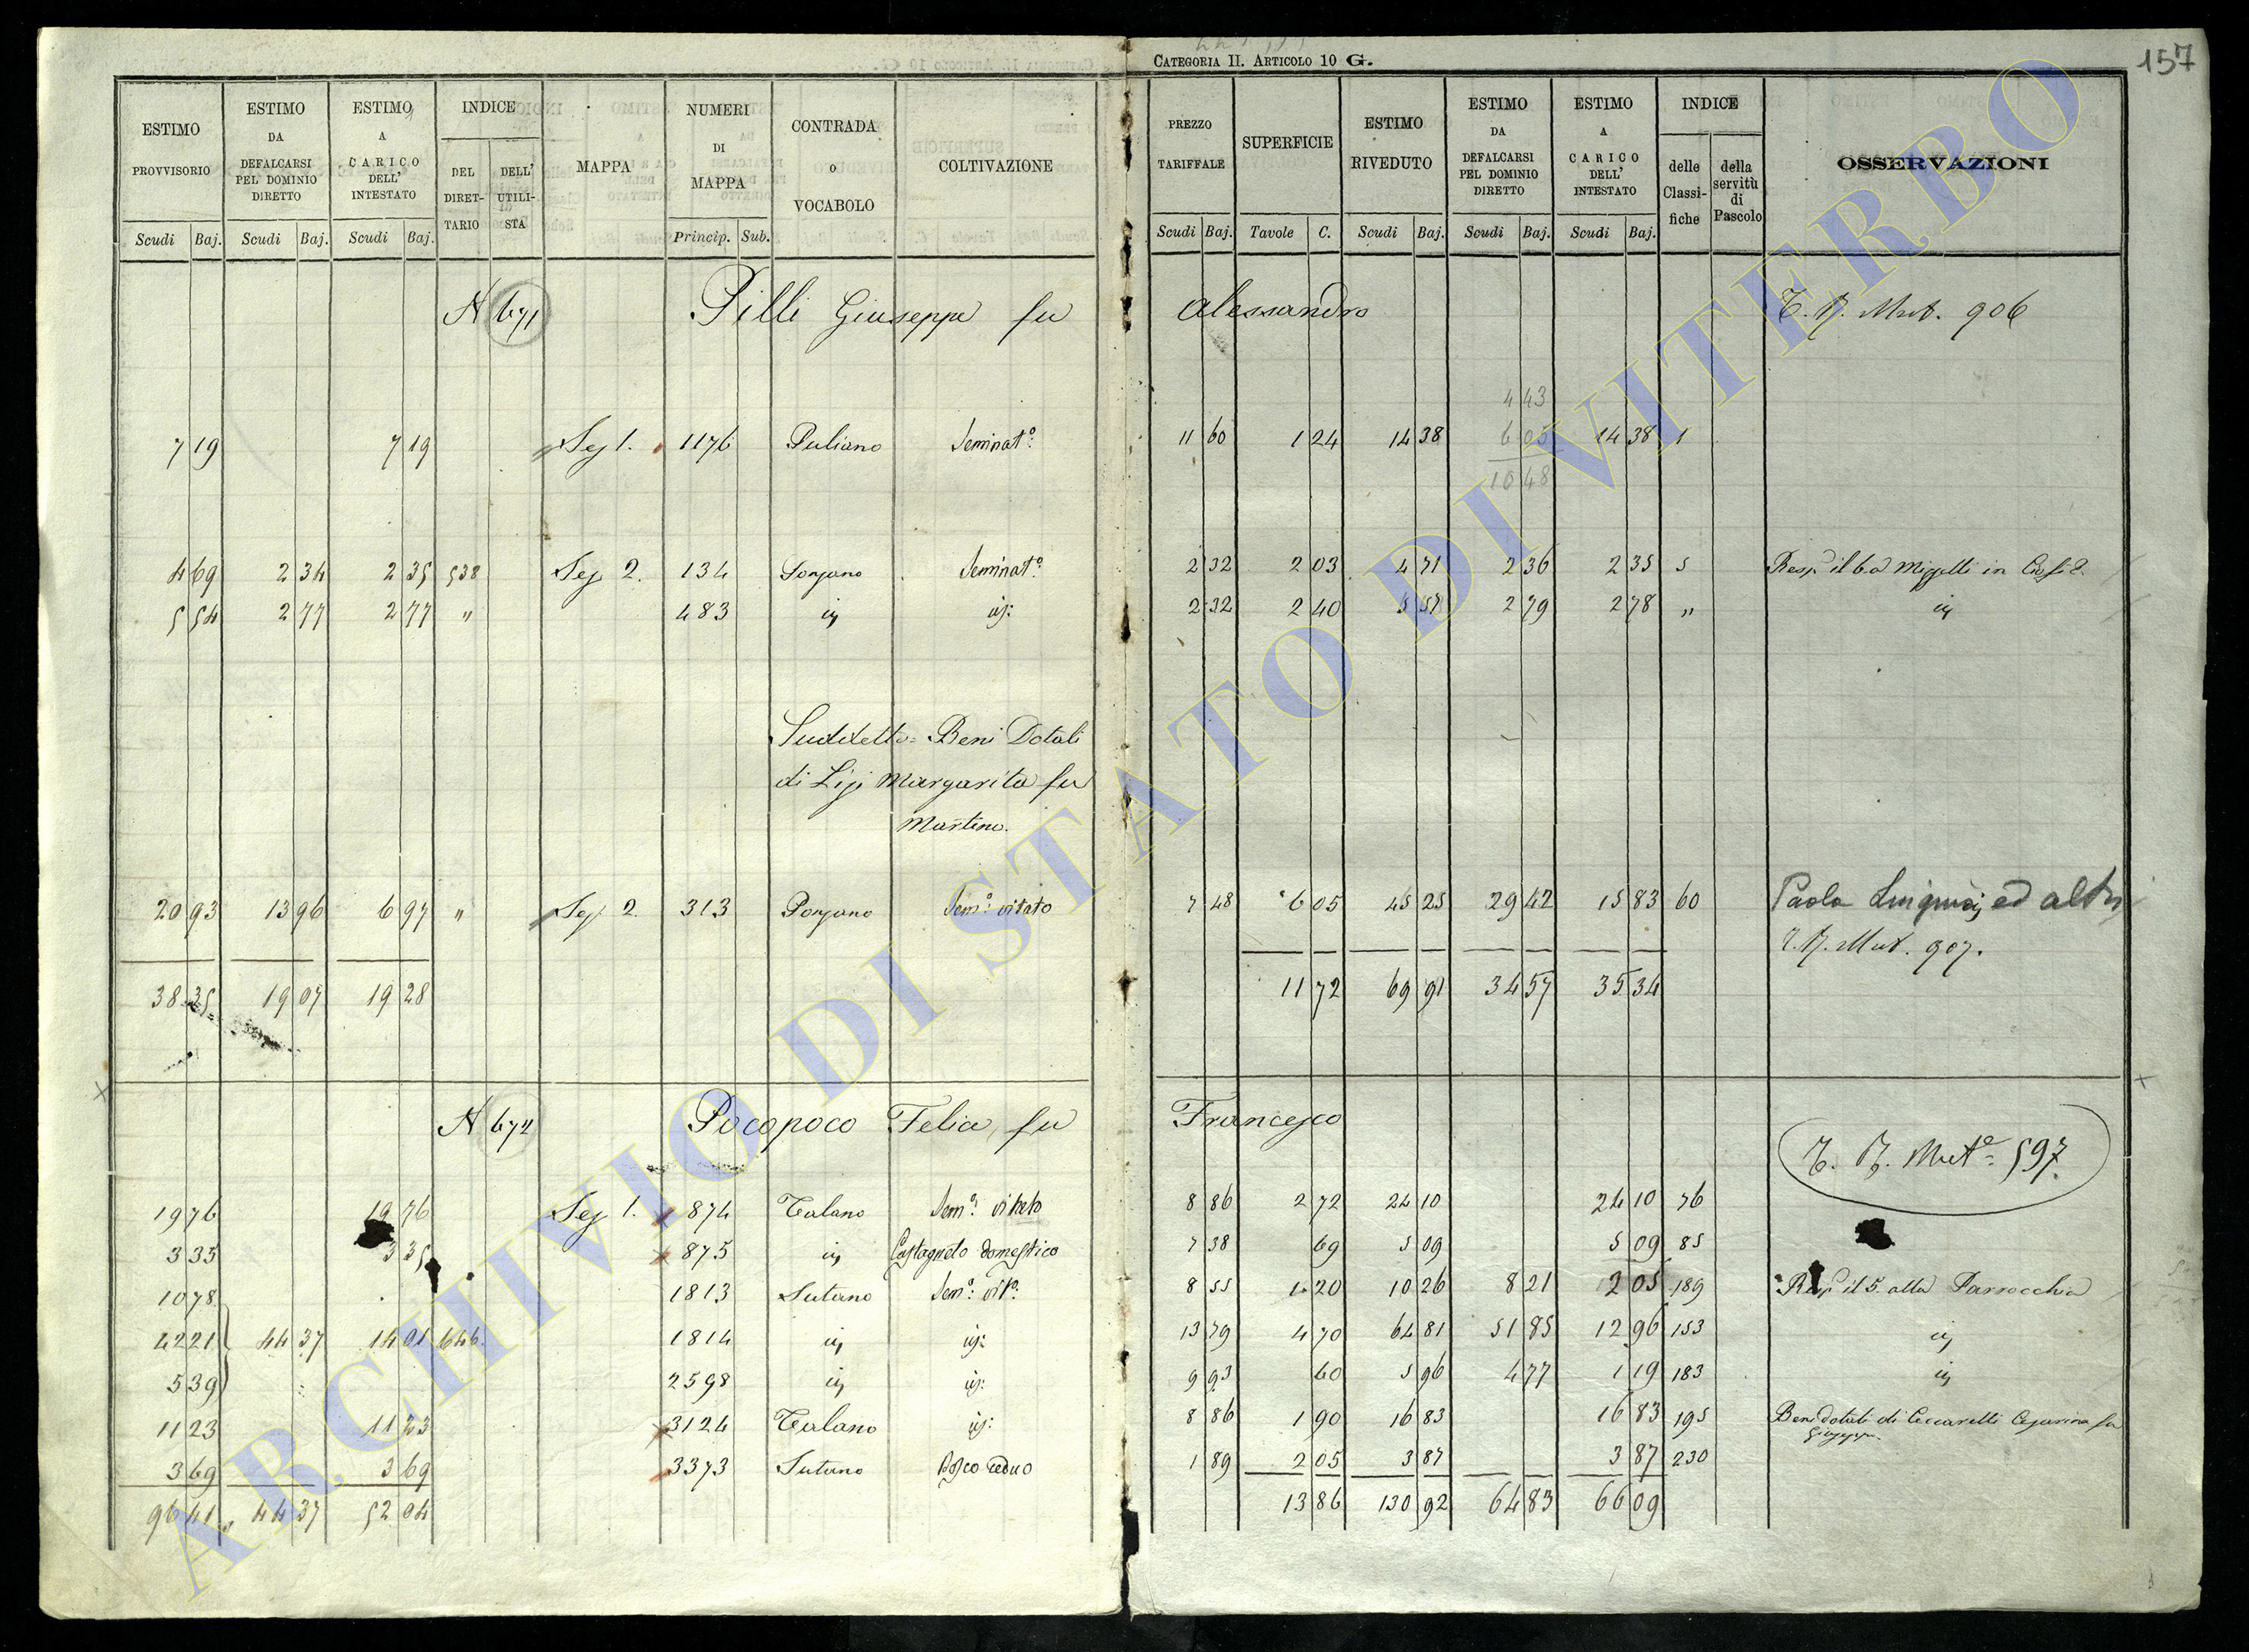 CATEGORIA II. ARTICOLO 10 G.
157
ESTIMO PROVVISORIO
ESTIMO DA DEFALCARSI PEL DOMINIO DIRETTO
ESTIMO A CARICO DELL' INTESTATO
INDICE
DEL DIRETTARIO
DELL' UTILISTA
MAPPA
NUMERI DI MAPPA
CONTRADA o VOCABOLO
COLTIVAZIONE
PREZZO TARIFFALE
SUPERFICIE
ESTIMO RIVEDUTO
ESTIMO DA DEFALCARSI PEL DOMINIO DIRETTO
ESTIMO A CARICO DELL' INTESTATO
INDICE
delle Classifiche
della servitù di Pascolo
OSSERVAZIONI
Scudi Baj. Scudi Baj. Scudi Baj. Princip. Sub. Scudi Baj. Tavole C. Scudi Baj. Scudi Baj. Scudi Baj.
N 671 Pilli Giuseppe fu Alessandro Mut. 906
4 43
7 19 7 19 Sez 1. 1176 Puliano Seminat°: 11 60 1 24 14 38 6 05 14 38 1
10 48
4 69 2 34 2 35 538 Sez 2. 134 Ponzano Seminat°: 2 32 2 03 4 71 2 36 2 35 5
5 54 2 77 2 77 " 483 2 32 2 40 5 57 2 79 2 78 "
Suddetto = Beni Dotali
di Margarita fu
Martino.
20 93 13 96 6 97 " Sez 2. 313 Ponzano Sem°: vitato 7 48 6 05 45 25 29 42 15 83 60 Paola ed altri
Mut. 907.
38 35 19 07 19 28 11 72 69 91 34 57 35 34
N 672 Pocopoco Felice fu Francesco
Mut° = 597.
19 76 19 76 Sez 1. 874 Talano Sem°: vitato 8 86 2 72 24 10 24 10 76
3 35 3 35 875 Castagneto domestico 7 38 69 5 09 5 09 85
10 78 1813 Sutano Sem°: vit°: 8 55 1 20 10 26 8 21 2 05 189 Resp il 5. alla Parrocchia
42 21 44 37 14 01 646. 1814 13 79 4 70 64 81 51 85 12 96 153
5 39 2598 9 93 60 5 96 4 77 1 19 183
11 23 11 23 3124 Talano 8 86 1 90 16 83 16 83 195 Beni dotali di Ceccarelli Cesarina fu
Giuseppe
3 69 3 69 3373 Sutano Bosco ceduo 1 89 2 05 3 87 3 87 230
96 41 44 37 52 04 13 86 130 92 64 83 66 09
ARCHIVIO DI STATO DI VITERBO